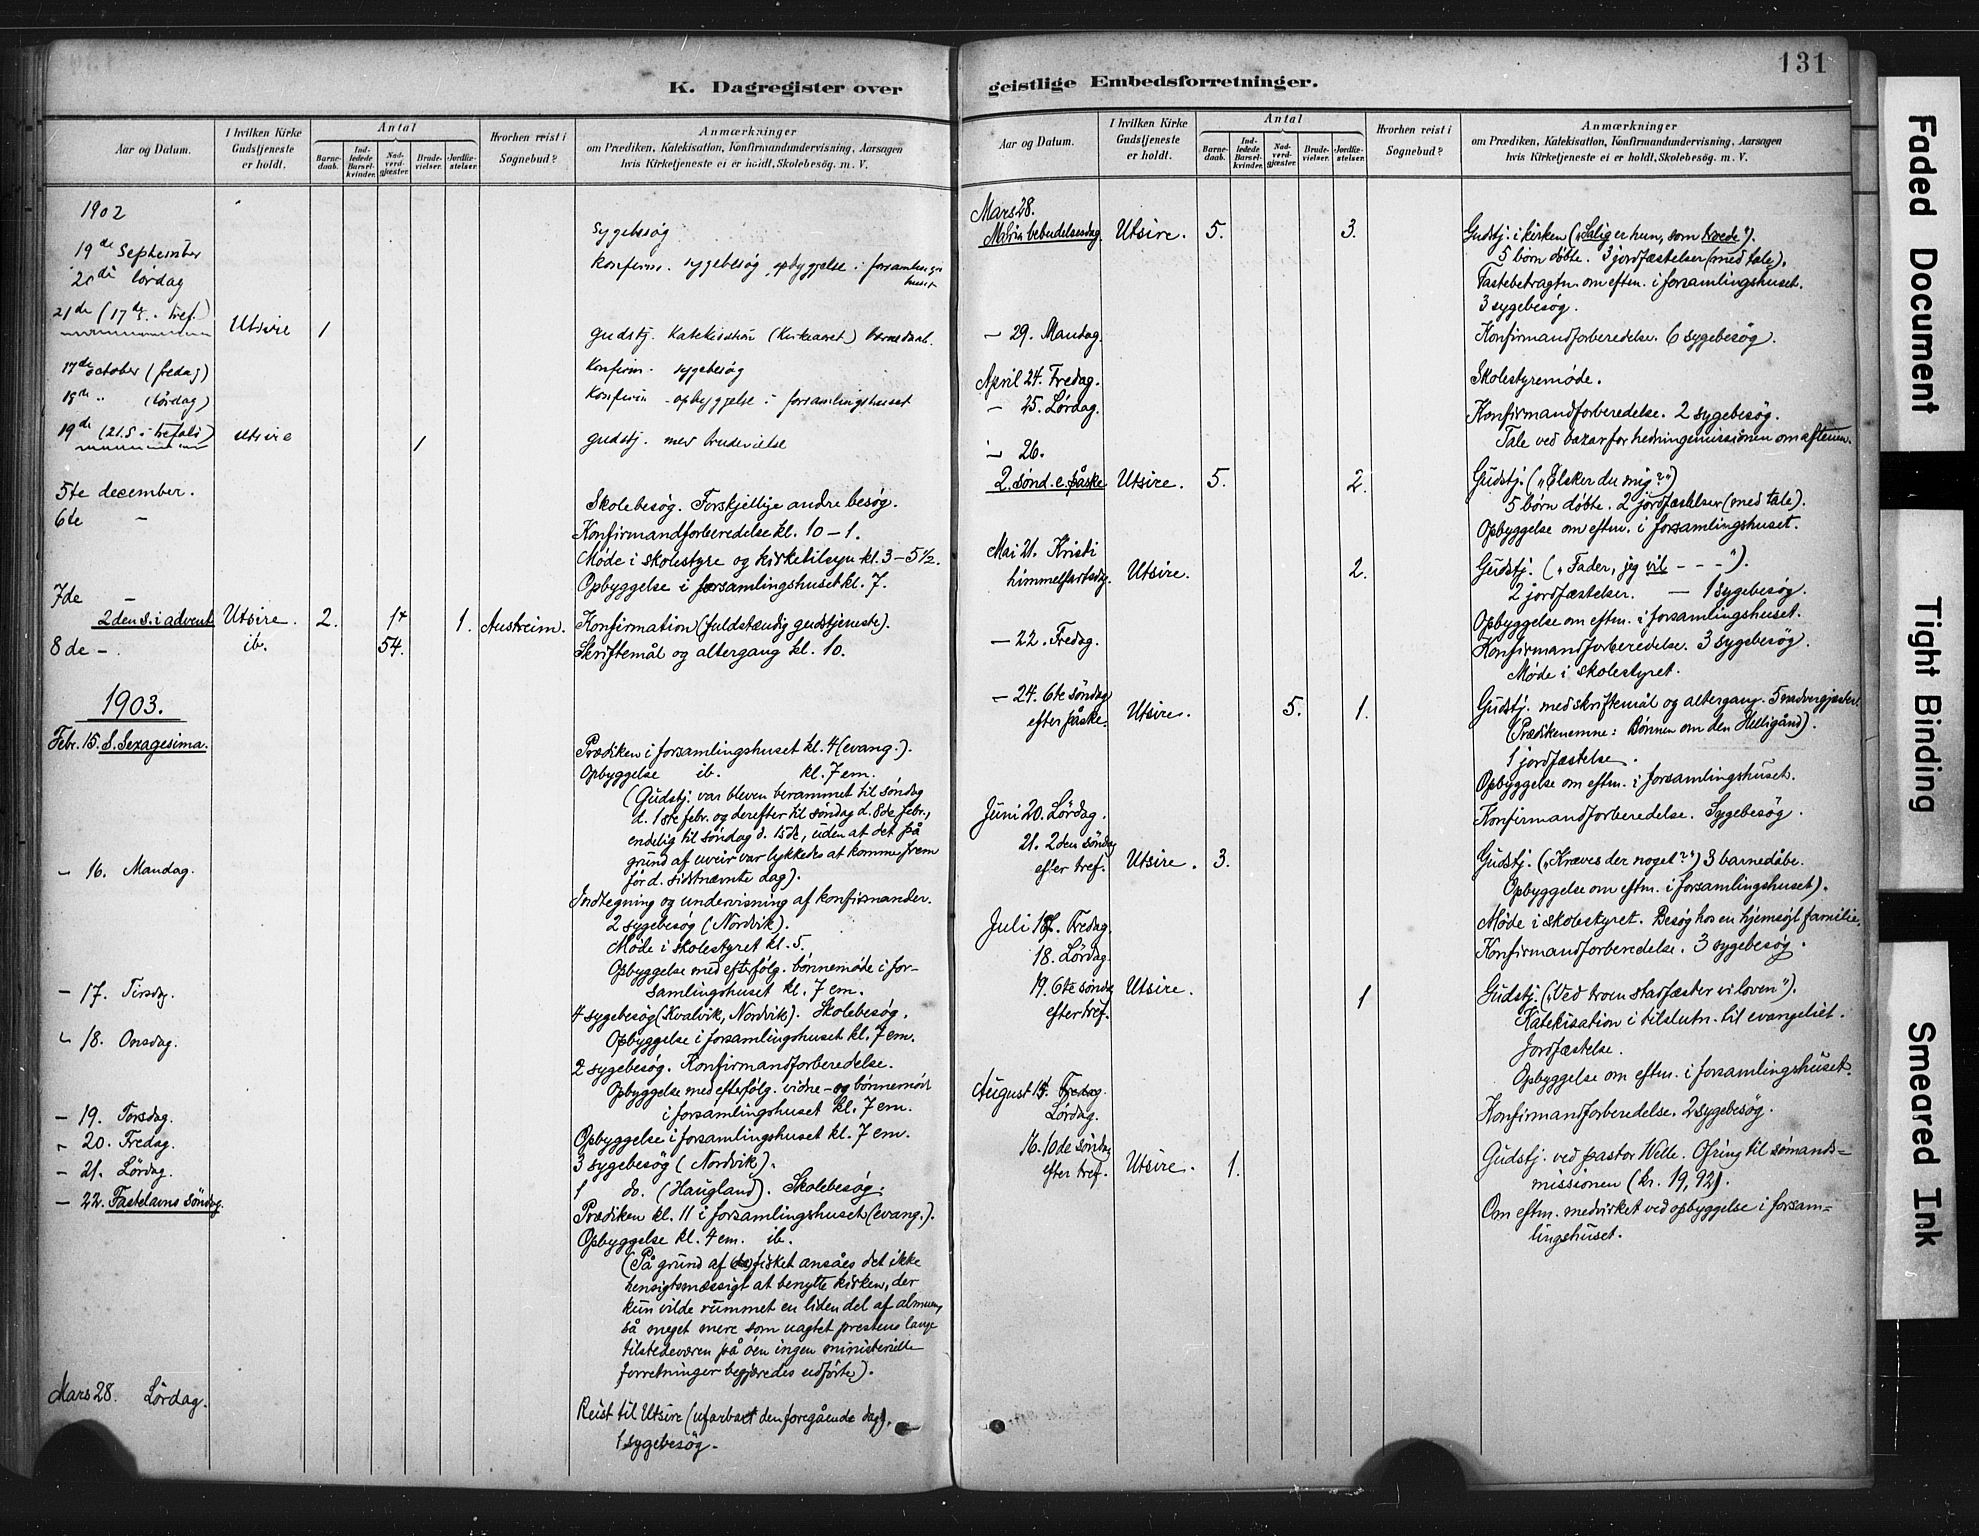 K. Dagregister over
Aar og Datum.
I hvilken Kirke Gudstjeneste er holdt.
Antal
Barne-daab.
Ind-ledede Barsel-kvinder.
Nad-verd-gjæster.
Brude-vielser.
Jordfæ-stelser.
Hvorhen reist i Sognebud?
Anmærkninger
om Prædiken, Katekisation, Konfirmandundervisning, Aarsagen
hvis Kirketjeneste ei er holdt, Skolebesög. m. V.
1902
19de September sygebesøg
20de lördag konfirm. sygebesøg, opbyggelse i forsamlings huset
21de (17de s. i tref.) Utsire 1 gudstj. katekisation (kirkeaaret) barnedaab.
17de october (fredag) konfirm. sygebesøg
18de " (lördag) konfirm - opbyggelse i forsamlingshuset
19de (21. S. i trefold) Utsire 1 gudstj. med brudevielse
5te december. Skolebesøg. Forskjellige andre besøg.
6te - Konfirmandforberedelse kl. 10 - 1.
Møde i skolestyre og kirketilsyn kl. 3 - 5 1/2.
Opbyggelse i forsamlingshuset kl. 7.
7de -
2den s. i advent Utsire. 2. 14 1. Austreim. Konfirmation (fuldstændig gudstjeneste).
8de - ib. 54. Skriftemål og altergang kl. 10.
1903.
Febr. 15. S. Sexagesima. Prædiken i forsamlingshuset kl. 4 (evang.).
Opbyggelse ib. kl. 7 em.
(Gudstj. var bleven berammet til søndag
d. 1ste febr. og derefter til søndag d. 8de febr.,
endelig til søndag d. 15de, uden at det på
grund af uveir var lykkedes at komme frem
før d. sidstnævnte dag).
- 16. Mandag. Indtegning og undervisning af konfirmander.
2 sygebesøg (Nordvik).
Møde i skolestyret kl. 5.
Opbyggelse med efterfølg. bønnemøde i for-
samlingshuset kl. 7 em.
- 17. Tirsdag. 4 sygebesøg (Kvalvik, Nordvik). Skolebesøg.
Opbyggelse i forsamlingshuset kl. 7 em.
- 18. Onsdag. 2 sygebesøg. Konfirmandforberedelse.
Opbyggelse med efterfølg. vidne- og bønnemøde
i forsamlingshuset kl. 7 em.
- 19. Torsdag. Opbyggelse i forsamlingshuset kl. 7 em.
- 20. Fredag. 3 sygebesøg (Nordvik).
- 21. Lørdag. 1 do. (Haugland). Skolebesøg.
- 22. Fastelavns söndag. Prædiken kl. 11 i forsamlingshuset (evang.).
Opbyggelse kl. 4 em. ib.
(På grund af fisket ansåes det ikke
hensigtsmæssigt at benytte kirken, der
kun vilde rummet en liden del af almuen,
så meget mere som uagtet prestens lange
tilstedeværen på øen ingen ministerielle
forretninger begjæredes udførte).
Mars 28. Lördag. Reist til Utsire (ufarbart den foregående dag).
1 sygebesøg.
geistlige Embedsforretninger.
131
Aar og Datum.
I hvilken Kirke Gudstjeneste er holdt.
Antal
Barne-daab.
Ind-ledede Barsel-kvinder.
Nad-verd-gjæster.
Brude-vielser.
Jordfæ-stelser.
Hvorhen reist i Sognebud?
Anmærkninger
om Prædiken, Katekisation, Konfirmandundervisning, Aarsagen
hvis Kirketjeneste ei er holdt, Skolebesög. m. V.
Mars 28.
Maria bebudelsesdag. Utsire. 5. 3. Gudstj. i kirken ("Salig er hun, som troede").
5 børn døbte. 3 jordfæstelser (med tale).
Fastebetragtn. om eftm. i forsamlingshuset.
3 sygebesøg.
- 29. Mandag. Konfirmandforberedelse. 6 sygebesøg.
April 24. Fredag. Skolestyremøde.
- 25. Lørdag. Konfirmandforberedelse. 2 sygebesøg.
Tale ved bazar for hedningemissionen om aftenen.
- 26.
2. sønd. e. påske Utsire. 5. 2. Gudstj. ("Elsker du mig?")
5 børn døbte. 2 jordfæstelser (med tale).
Opbyggelse om eftm. i forsamlingshuset.
Mai 21. Kristi
himmelfartsdag. Utsire. 2. Gudstj. ("Fader, jeg vil - - - ").
2 jordfæstelser. - 1 sygebesøg.
Opbyggelse om eftm. i forsamlingshuset.
- 22. Fredag. Konfirmandforberedelse. 3 sygebesøg.
Møde i skolestyret.
- 24. 6te söndag
efter påske. Utsire. 5. 1. Gudstj. med skriftemål og altergang. 5 nadvergjæster.
(Prædikenemne: Bønnen om den Helligånd).
1 jordfæstelse.
Opbyggelse om eftm. i forsamlingshuset.
Juni 20. Lørdag. Konfirmandforberedelse. Sygebesøg.
21. 2den söndag
efter tref. Utsire. 3. Gudstj. ("Kræves der noget?") 3 barnedåbe.
Opbyggelse om eftm. i forsamlingshuset).
Juli 17. Fredag. Møde i skolestyret. Besøg hos en hjemsøgt familie.
18. Lørdag. Konfirmandforberedelse. 3 sygebesøg.
19. 6te söndag
efter tref. Utsire. 1 Gudstj. ("Ved troen stadfæster vi loven").
Katekisation i tilslutn. til evangeliet.
Jordfæstelse.
Opbyggelse om eftm. i forsamlingshuset.
August 15. Fredag.
Lørdag. Konfirmandforberedelse. 2 sygebesøg.
16. 10de söndag
efter tref. Utsire. 1. Gudstj. ved pastor Welle. Ofring til sømands-
missionen (kr. 19,92).
Om eftm. medvirket ved opbyggelse i forsam-
lingshuset.
Faded Document
Tight Binding
Smeared Ink